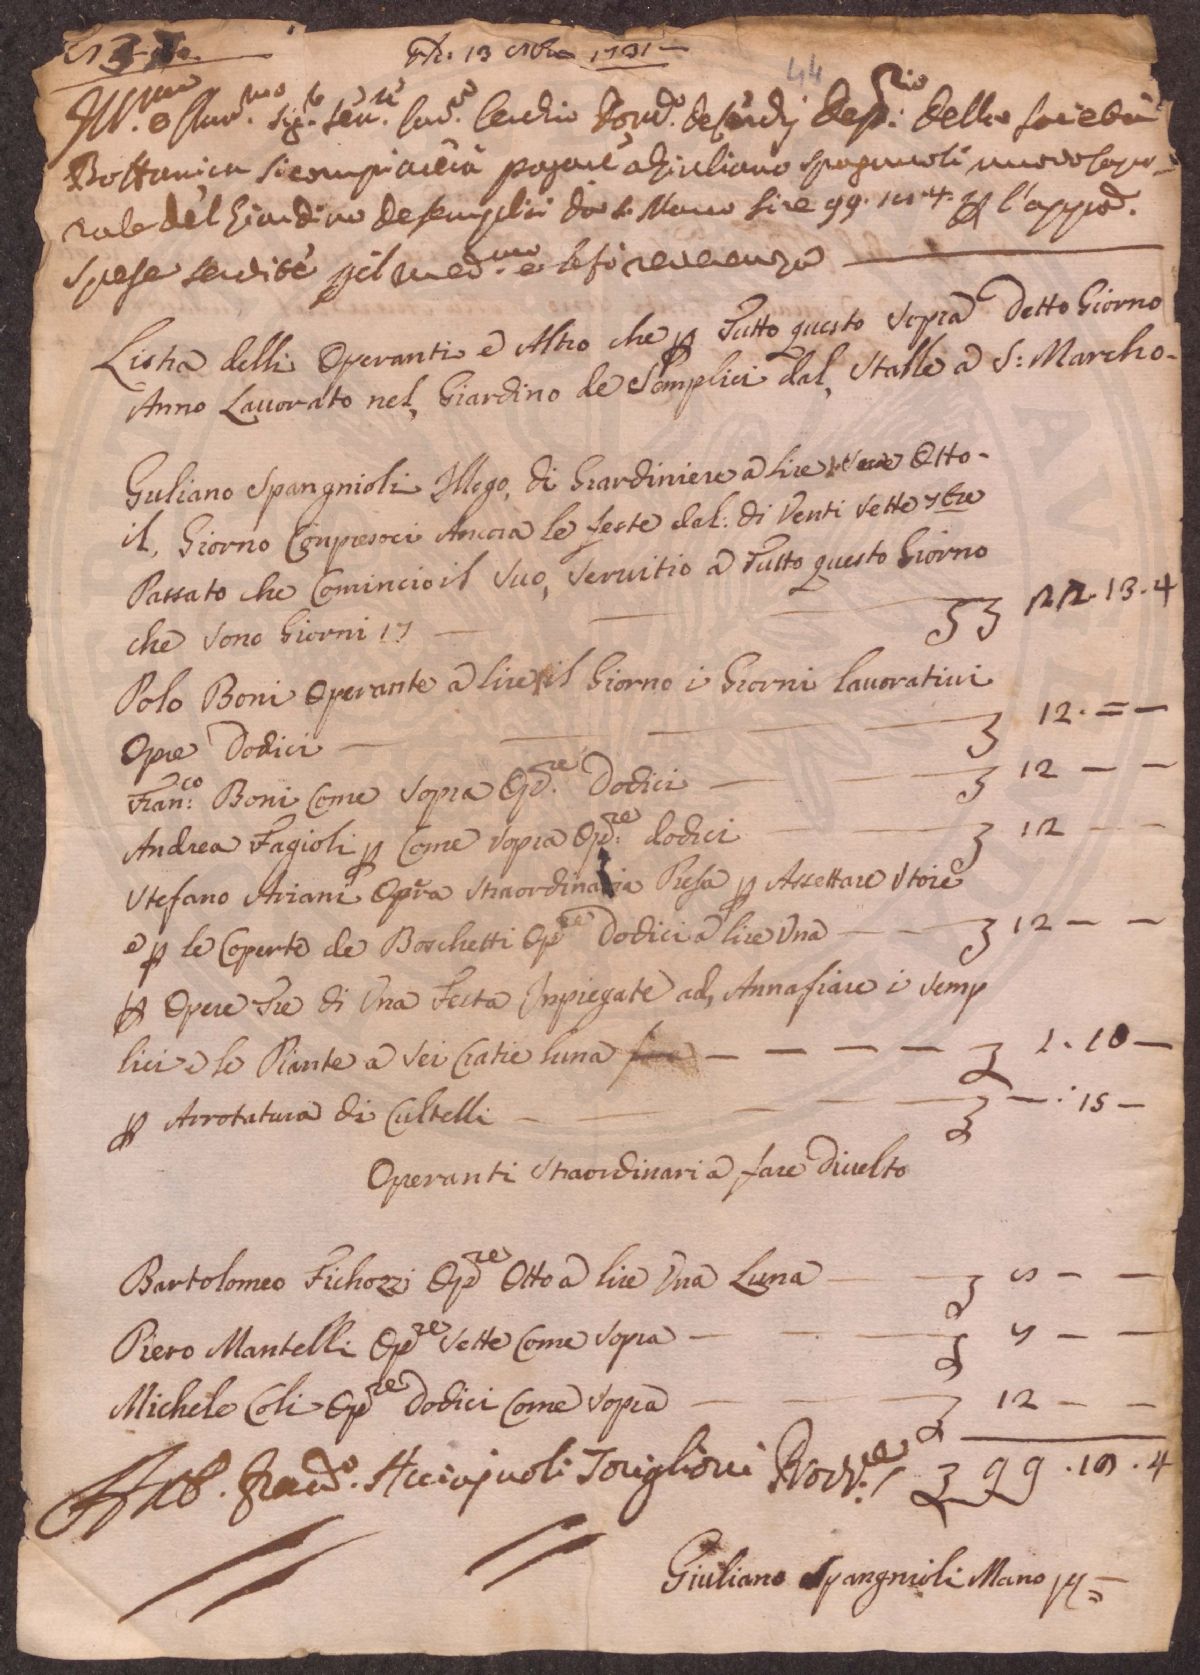 Adi. 13 8bre 1731
44
Ill.mo e Clar.mo Sig.re Sen.re Cav.re
Bottanica si compiacerà pagare a Giuliano Spagnuoli nuovo Capo-
rale del Giardino de semplici da S. Marco lire 99. 18. 4. p l'appiè.
spese servite p il med.mo e le fò reverenza
Lista delli Operanti e Altro che p Tutto questo Sopra Detto Giorno
Anno Lavorato nel, Giardino de Semplici dal, Stalle a S: Marcho-
Guliano Spangnioli Illego, di Giardiniere a lire Otto-
il, Giorno Conpresoci Ancora le feste dal: di Venti Sette 7bre
Passato che Comincio il Suo, Servitio a Tutto questo Giorno
che Sono Giorni 17 — 22. 13. 4
Polo Boni Operante a lire il Giorno i Giorni lavorativi
Opre Dodici — 12. = —
Fran.co Boni Come Sopra Op.re Dodici — 12 — —
Andrea Fagioli p Come Sopra Op.re dodici — 12 — —
Stefano Ariani Opra Straordinaria Presa p Assettare Stoie
e p le Coperte de Boschetti Op.re Dodici a lire Una — 12 — —
p Opere Tre di Una Festa Inpiegate ad, Annafiare i Semp
lici e le Piante a Sei Cratie luna — 1. 10 —
p Arrotatura di Cultelli — . 15 —
Operanti Straordinari a fare Divelto
Bartolomeo Fichozzi Op.re Otto a lire Una Luna — 8 — —
Piero Mantelli Op.re Sette Come Sopra — — —
Michele Coli Op.re Dodici Come Sopra — 12 — —
Acciajuoli Toriglioni Provv.re 99. 18. 4
Giuliano Spangnioli Mano pp